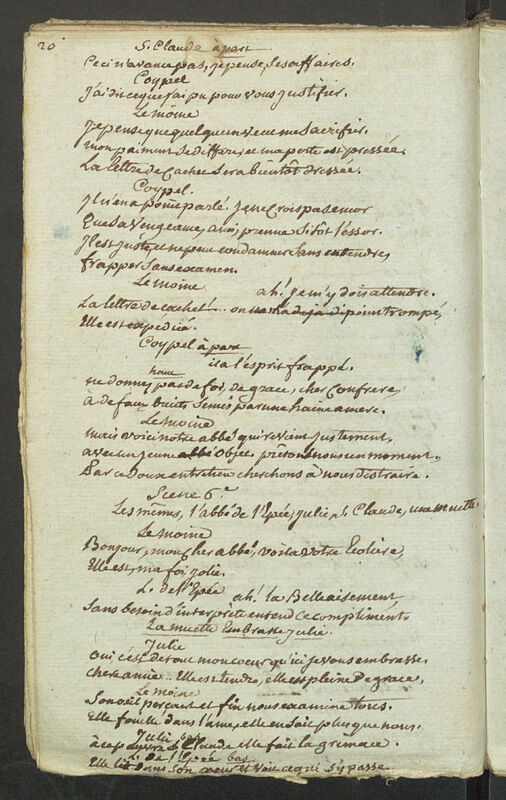 20
S. Claude à part
Ceci n'avance pas, je pense, ses affaires.
Coypel
J'ai dit ce que j'ai pu pour vous justifier.
Le moine
Je pense que quelqu'un veut me sacrifier.
mon paiment se differe, et ma perte est pressée.
La lettre de cachet sera bientôt dressée.
Coypel.
Il n'en a point parlé. Je ne crois pas encor
Que sa vengeance, ami, prenne sitôt l'essor.
Il est juste, et ne peut condamner sans entendre,
frapper sans examen.
Le moine
ah! je m'y dois attendre.
La lettre de cachet.. on ne m'a point trompé,
Elle est expediée.
Coypel à part
il a l'esprit frappé.
haut
ne donnez pas de foi, de grace, cher Confrere,
à de faux bruits semés par une haine amere.
Le moine
mais voici notre abbé qui revient justement,
avec un jeune objet, prêtons nous un moment,
Par ce doux entretien cherchons à nous distraire.
Scene 6.e
Les mêmes, l'abbé de l'Epée, Julie, S. Claude, une muette.
Le moine
Bonjour, mon cher abbé, voila votre Ecoliere,
Elle est, ma foi, jolie.
L. de l'Epée
ah! la Belle aisement,
Sans besoin d'interprète entend ce compliment.
La muette Embrasse Julie.
Julie
oui c'est de tout mon coeur qu'ici je vous embrasse
chere amie.. Elle est tendre, elle est pleine de grace,
Le moine
Son oeil perçant et fin nous examine tous.
Elle fouille dans l'ame, elle en sait plus que nous.
Julie bas
à S. Claude elle fait la grimace.
L. de l'Epée bas
Elle lit dans son coeur et voit ce qui s'y passe